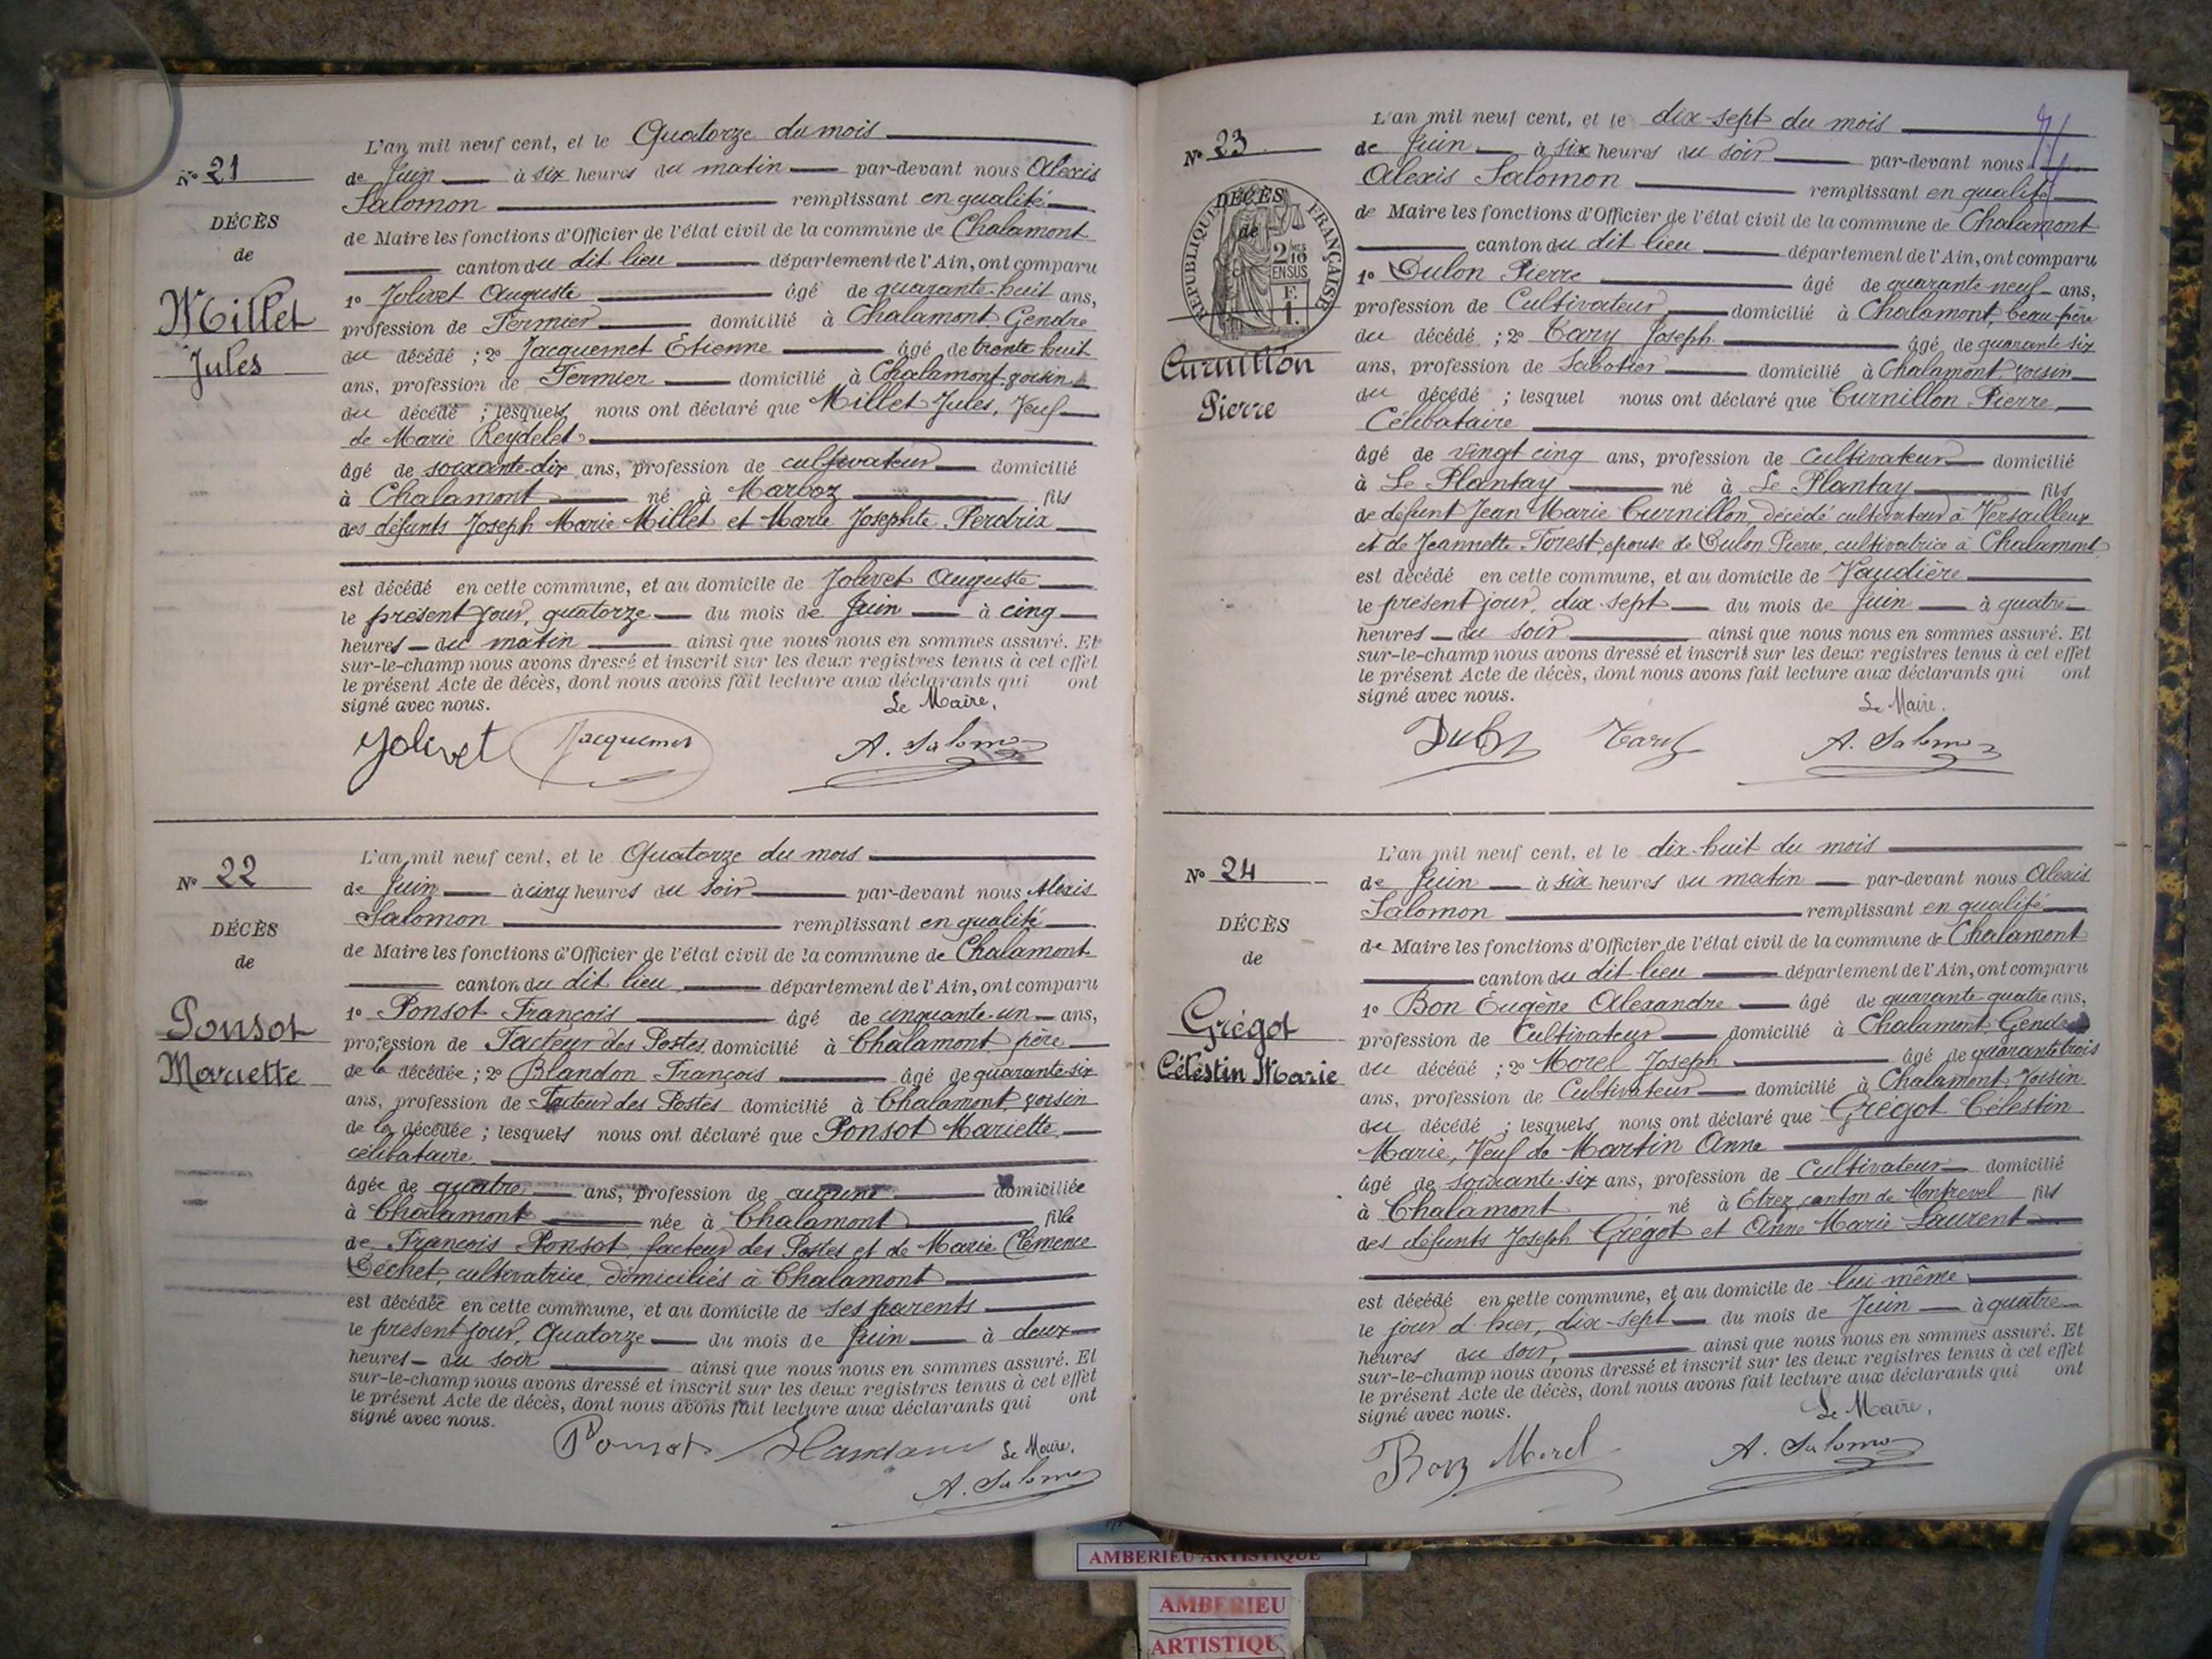 L'an mil neuf cent, et le Quatorze du mois
N° 21
de Juin à six heures du matin par-devant nous Alexis
Salomon remplissant en qualité
DÉCÈS
de Maire les fonctions d'Officier de l'état civil de la commune de Chalamont
de
canton du dit lieu département de l'Ain, ont comparu
Millet
Jules
1° Jolivet Auguste âgé de quarante-huit ans,
profession de Fermier domicilié à Chalamont, Gendre
du décédé ; 2° Jacquemet Etienne âgé de trente huit
ans, profession de Fermier domicilié à Chalamont, voisin
du décédé ; lesquels nous ont déclaré que Millet Jules, Veuf
de Marie Reydelet
âgé de soixante-dix ans, profession de cultivateur domicilié
à Chalamont né à Marboz fils
des défunts Joseph Marie Millet et Marie Josephte Perdrix
est décédé en cette commune, et au domicile de Jolivet Auguste
le présent jour, quatorze du mois de Juin à cinq
heures du matin ainsi que nous nous en sommes assuré. Et
sur-le-champ nous avons dressé et inscrit sur les deux registres tenus à cet effet
le présent Acte de décès, dont nous avons fait lecture aux déclarants qui ont
signé avec nous.
Le Maire,
Jolivet Jacquemet A. Salomon
L'an mil neuf cent, et le Quatorze du mois
N° 22
de Juin à cinq heures du soir par-devant nous Alexis
Salomon remplissant en qualité
DÉCÈS
de Maire les fonctions d'Officier de l'état civil de la commune de Chalamont
de
canton du dit lieu département de l'Ain, ont comparu
Ponsot
Mariette
1° Ponsot François âgé de cinquante-un ans,
profession de Facteur des Postes domicilié à Chalamont, père
de la décédée ; 2° Blandon François âgé de quarante-six
ans, profession de Facteur des Postes domicilié à Chalamont, voisin
de la décédée ; lesquels nous ont déclaré que Ponsot Mariette,
célibataire
âgée de quatre ans, profession de aucune domiciliée
à Chalamont née à Chalamont fille
de François Ponsot, facteur des Postes et de Marie Clémence
Déchet, cultivatrice, domiciliés à Chalamont
est décédée en cette commune, et au domicile de ses parents
le présent jour, Quatorze du mois de Juin à deux
heures du soir ainsi que nous nous en sommes assuré. Et
sur-le-champ nous avons dressé et inscrit sur les deux registres tenus à cet effet
le présent Acte de décès, dont nous avons fait lecture aux déclarants qui ont
signé avec nous.
Ponsot Blandon Le Maire,
A. Salomon
L'an mil neuf cent, et le dix-sept du mois
N° 23
de Juin à six heures du soir par-devant nous
Alexis Salomon remplissant en qualité
DÉCÈS
de
RÉPUBLIQUE FRANÇAISE
2/10 EN SUS
1.
de Maire les fonctions d'Officier de l'état civil de la commune de Chalamont
canton du dit lieu département de l'Ain, ont comparu
Curnillon
Pierre
1° Dulon Pierre âgé de quarante neuf ans,
profession de Cultivateur domicilié à Chalamont, beau-père
du décédé ; 2° Cary Joseph âgé de quarante six
ans, profession de Sabotier domicilié à Chalamont, voisin
du décédé ; lesquel nous ont déclaré que Curnillon Pierre,
Célibataire
âgé de vingt cinq ans, profession de cultivateur domicilié
à Le Plantay né à Le Plantay fils
de défunt Jean Marie Curnillon, décédé cultivateur à Versailleux
et de Jeannette Forest, épouse de Dulon Pierre, cultivatrice à Chalamont
est décédé en cette commune, et au domicile de Vaudière
le présent jour, dix-sept du mois de Juin à quatre
heures du soir ainsi que nous nous en sommes assuré. Et
sur-le-champ nous avons dressé et inscrit sur les deux registres tenus à cet effet
le présent Acte de décès, dont nous avons fait lecture aux déclarants qui ont
signé avec nous.
Le Maire.
A. Salomon
L'an mil neuf cent, et le dix-huit du mois
N° 24
de Juin à six heures du matin par-devant nous Alexis
Salomon remplissant en qualité
DÉCÈS
de Maire les fonctions d'Officier de l'état civil de la commune de Chalamont
de
canton du dit lieu département de l'Ain, ont comparu
Grégot
Célestin Marie
1° Bon Eugène Alexandre âgé de quarante quatre ans,
profession de Cultivateur domicilié à Chalamont, Gendre
du décédé ; 2° Morel Joseph âgé de quarante trois
ans, profession de Cultivateur domicilié à Chalamont, Voisin
du décédé ; lesquels nous ont déclaré que Grégot Célestin
Marie, Veuf de Martin Anne
âgé de soixante-six ans, profession de Cultivateur domicilié
à Chalamont né à Etrez, canton de Montrevel fils
des défunts Joseph Grégot et Anne Marie Laurent
est décédé en cette commune, et au domicile de lui même
le jour d'hier, dix-sept du mois de Juin à quatre
heures du soir, ainsi que nous nous en sommes assuré. Et
sur-le-champ nous avons dressé et inscrit sur les deux registres tenus à cet effet
le présent Acte de décès, dont nous avons fait lecture aux déclarants qui ont
signé avec nous.
Le Maire,
Bon Morel A. Salomon
AMBERIEU ARTISTIQUE
AMBERIEU
ARTISTIQU